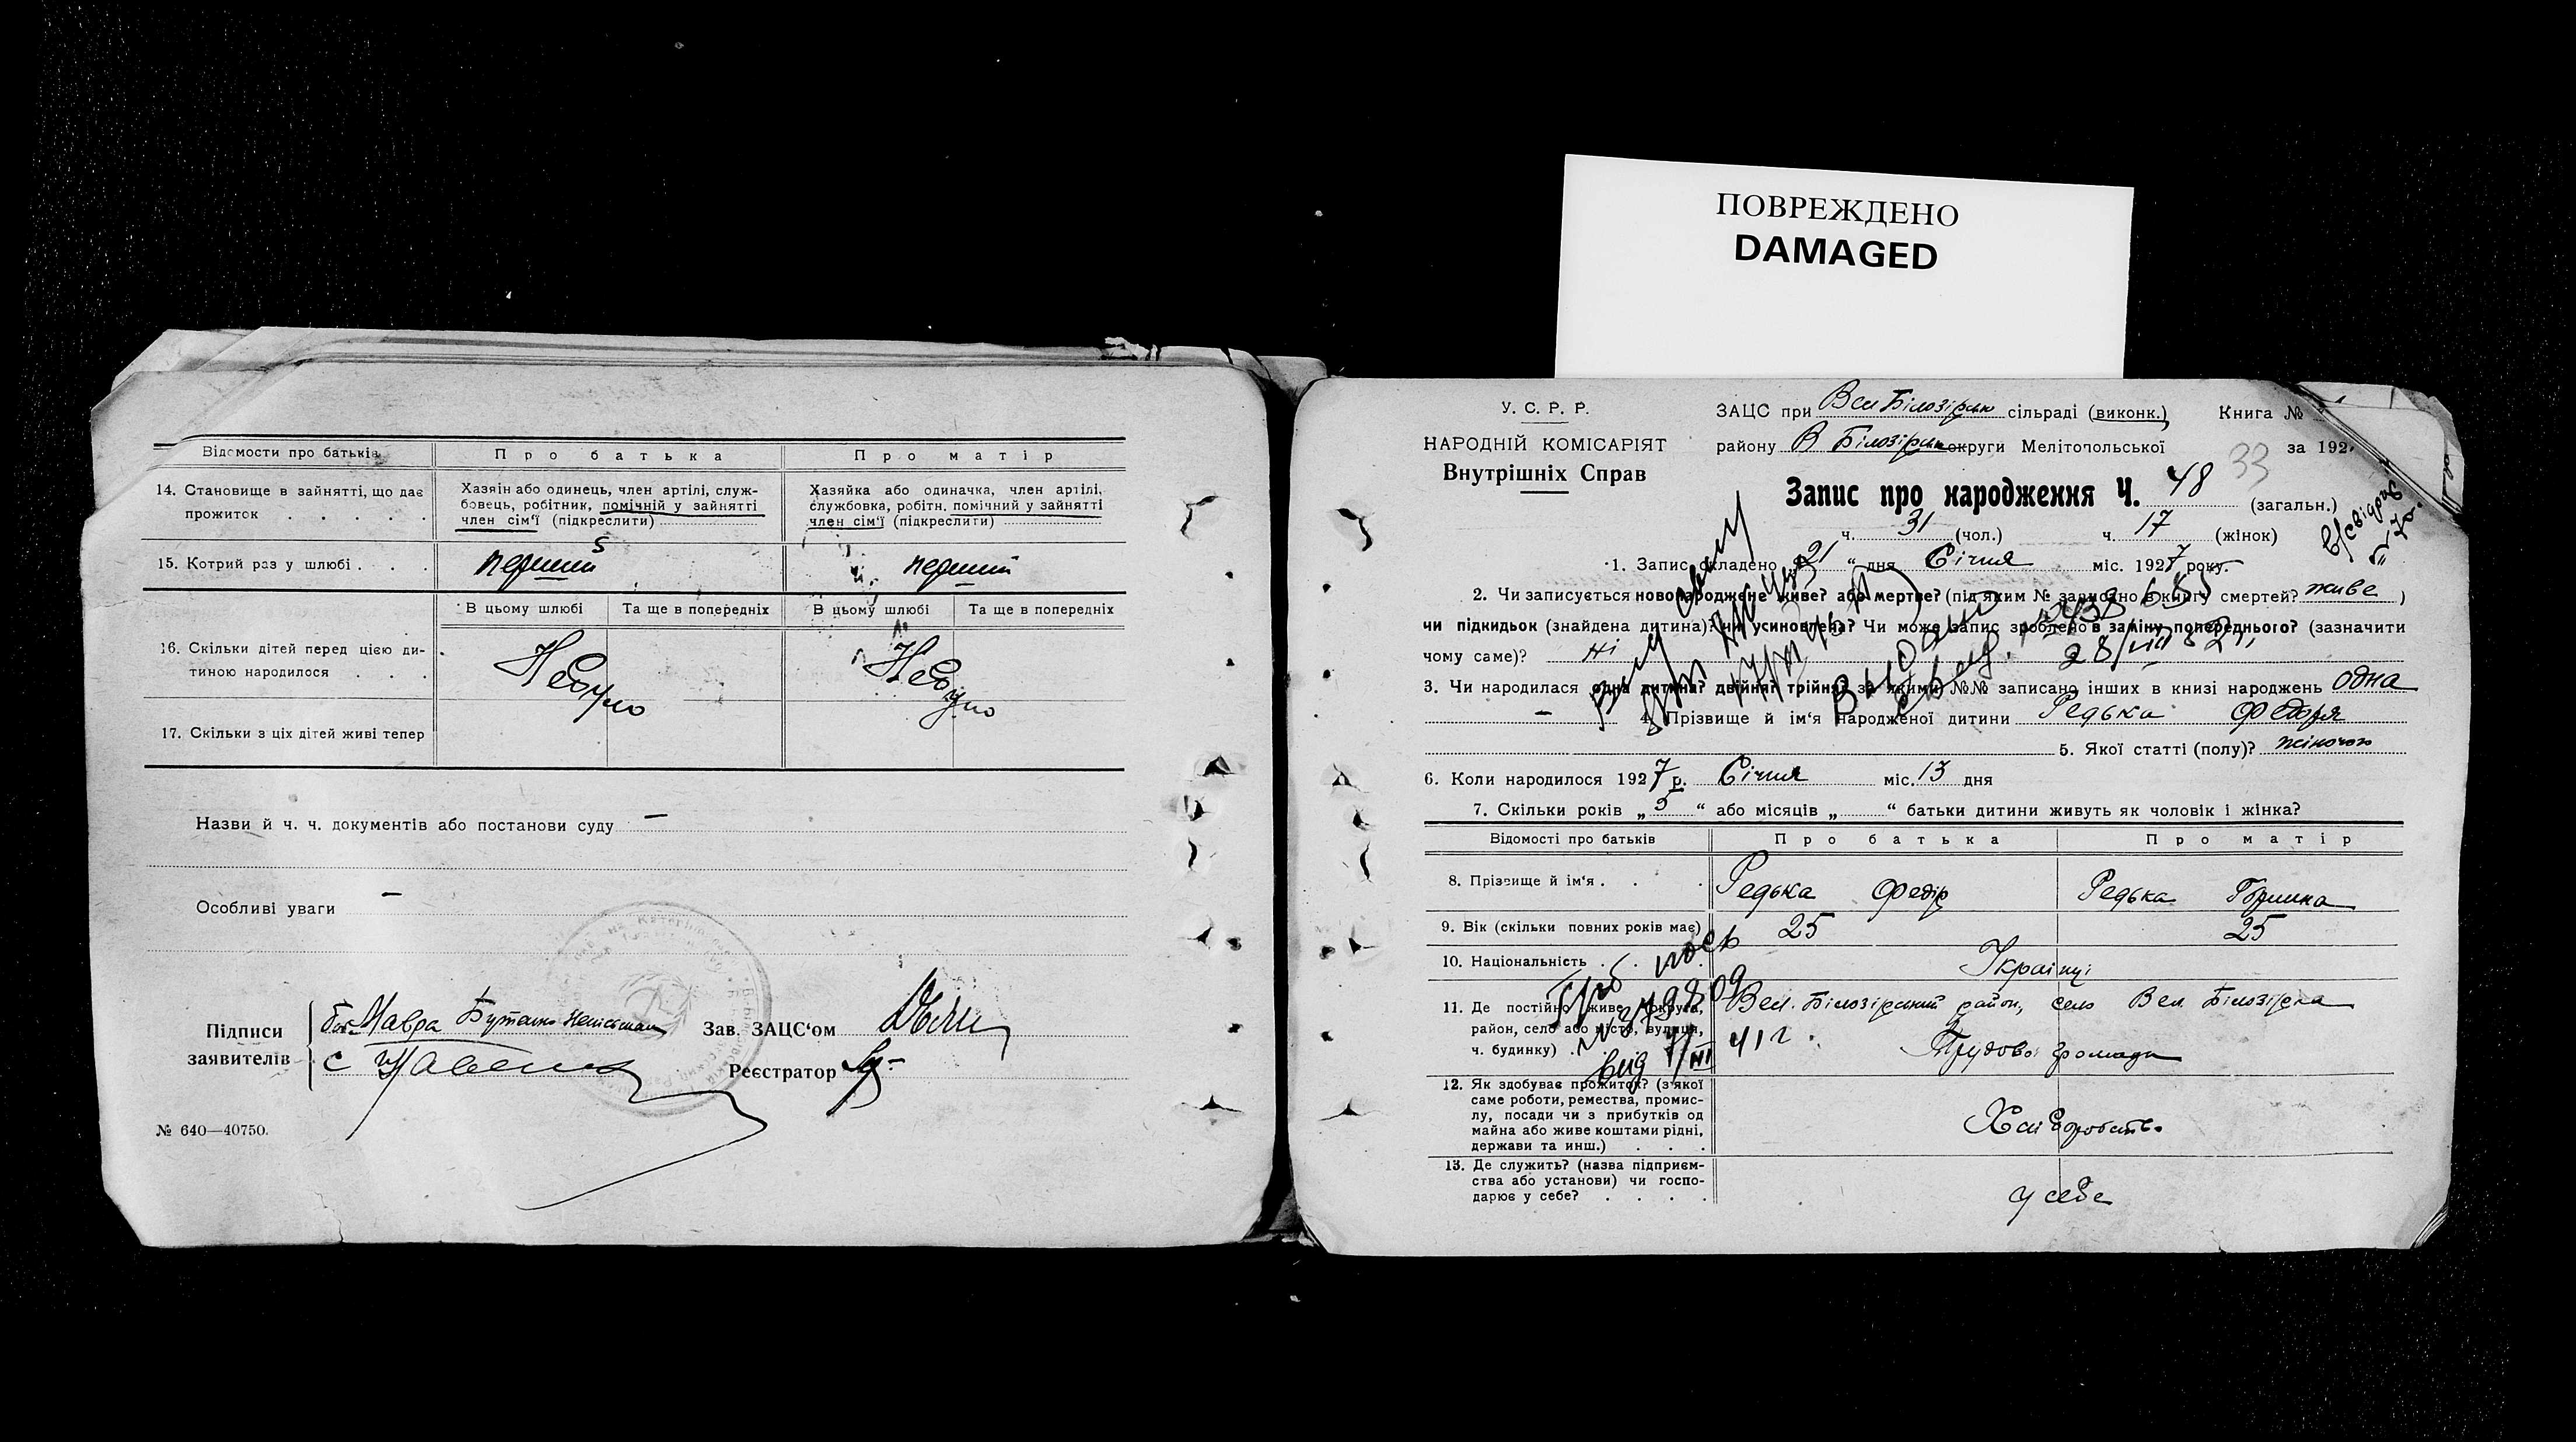 ПОВРЕЖДЕНО
DAMAGED
Відомости про батьків
Про батька
Про матір
14. Становище в зайнятті, що дає прожиток . . . . .
Хазяїн або одинець, член артілі, служ-
бовець, робітник, помічній у зайнятті
член сім'ї (підкреслити)
Хазяйка або одиначка, член артілі,
службовка, робітн. помічний у зайнятті
член сім'ї (підкреслити)
15. Котрий раз у шлюбі . . .
перший
перший
В цьому шлюбі
Та ще в попередніх
В цьому шлюбі
Та ще в попередніх
16. Скільки дітей перед цією ди-
тиною народилося . . .
Небуло
Небуло
17. Скільки з ціх дітей живі тепер
Назви й ч. ч. документів або постанови суду —
Особливі уваги —
Підписи
заявителів
Мавра
Зав. ЗАЦС'ом
Реєстратор
№ 640—40750.
У. С. Р. Р.
НАРОДНІЙ КОМІСАРІЯТ
Внутрішніх Справ
ЗАЦС при Вел Білозірськ сільраді (виконк.) Книга №
району В Білозірськ округи Мелітопольської за 192
33
Запис про народження Ч. 48 (загальн.)
ч. 31 (чол.) ч. 17 (жінок)
1. Запис складено „21“ дня Січня міс. 1927 року.
2. Чи записується новонароджене живе? або мертве? (під яким № записано в книгу смертей? живе )
чи підкидьок (знайдена дитина)? чи усиновлена? Чи може запис зроблено в заміну попереднього? (зазначити
чому саме)? Ні
28/VIII 52 г.
3. Чи народилася одна дитина? двійня? трійня? за якими №№ записано інших в книзі народжень одна
— 4. Прізвище й ім'я народженої дитини Редька Федоря
5. Якої статті (полу)? жіночою
6. Коли народилося 1927 р. Січня міс. 13 дня
7. Скільки років „5“ або місяців „ “ батьки дитини живуть як чоловік і жінка?
Відомості про батьків
Про батька
Про матір
8. Прізвище й ім'я . . .
Редька Федір
Редька Горпина
9. Вік (скільки повних років має)
25
25
10. Національність . . .
Українці
11. Де постійно живе (округа,
район, село або місто, вулиця,
ч. будинку) .
Вел. Білозірський район, село Вел Білозірка
Трудова громада
41 г.
12. Як здобуває прожиток? (з якої
саме роботи, ремества, промис-
лу, посади чи з прибутків од
майна або живе коштами рідні,
держави та инш.) . . .
Хліборобств.
13. Де служить? (назва підприєм-
ства або установи) чи госпо-
дарює у себе? . . . .
у себе